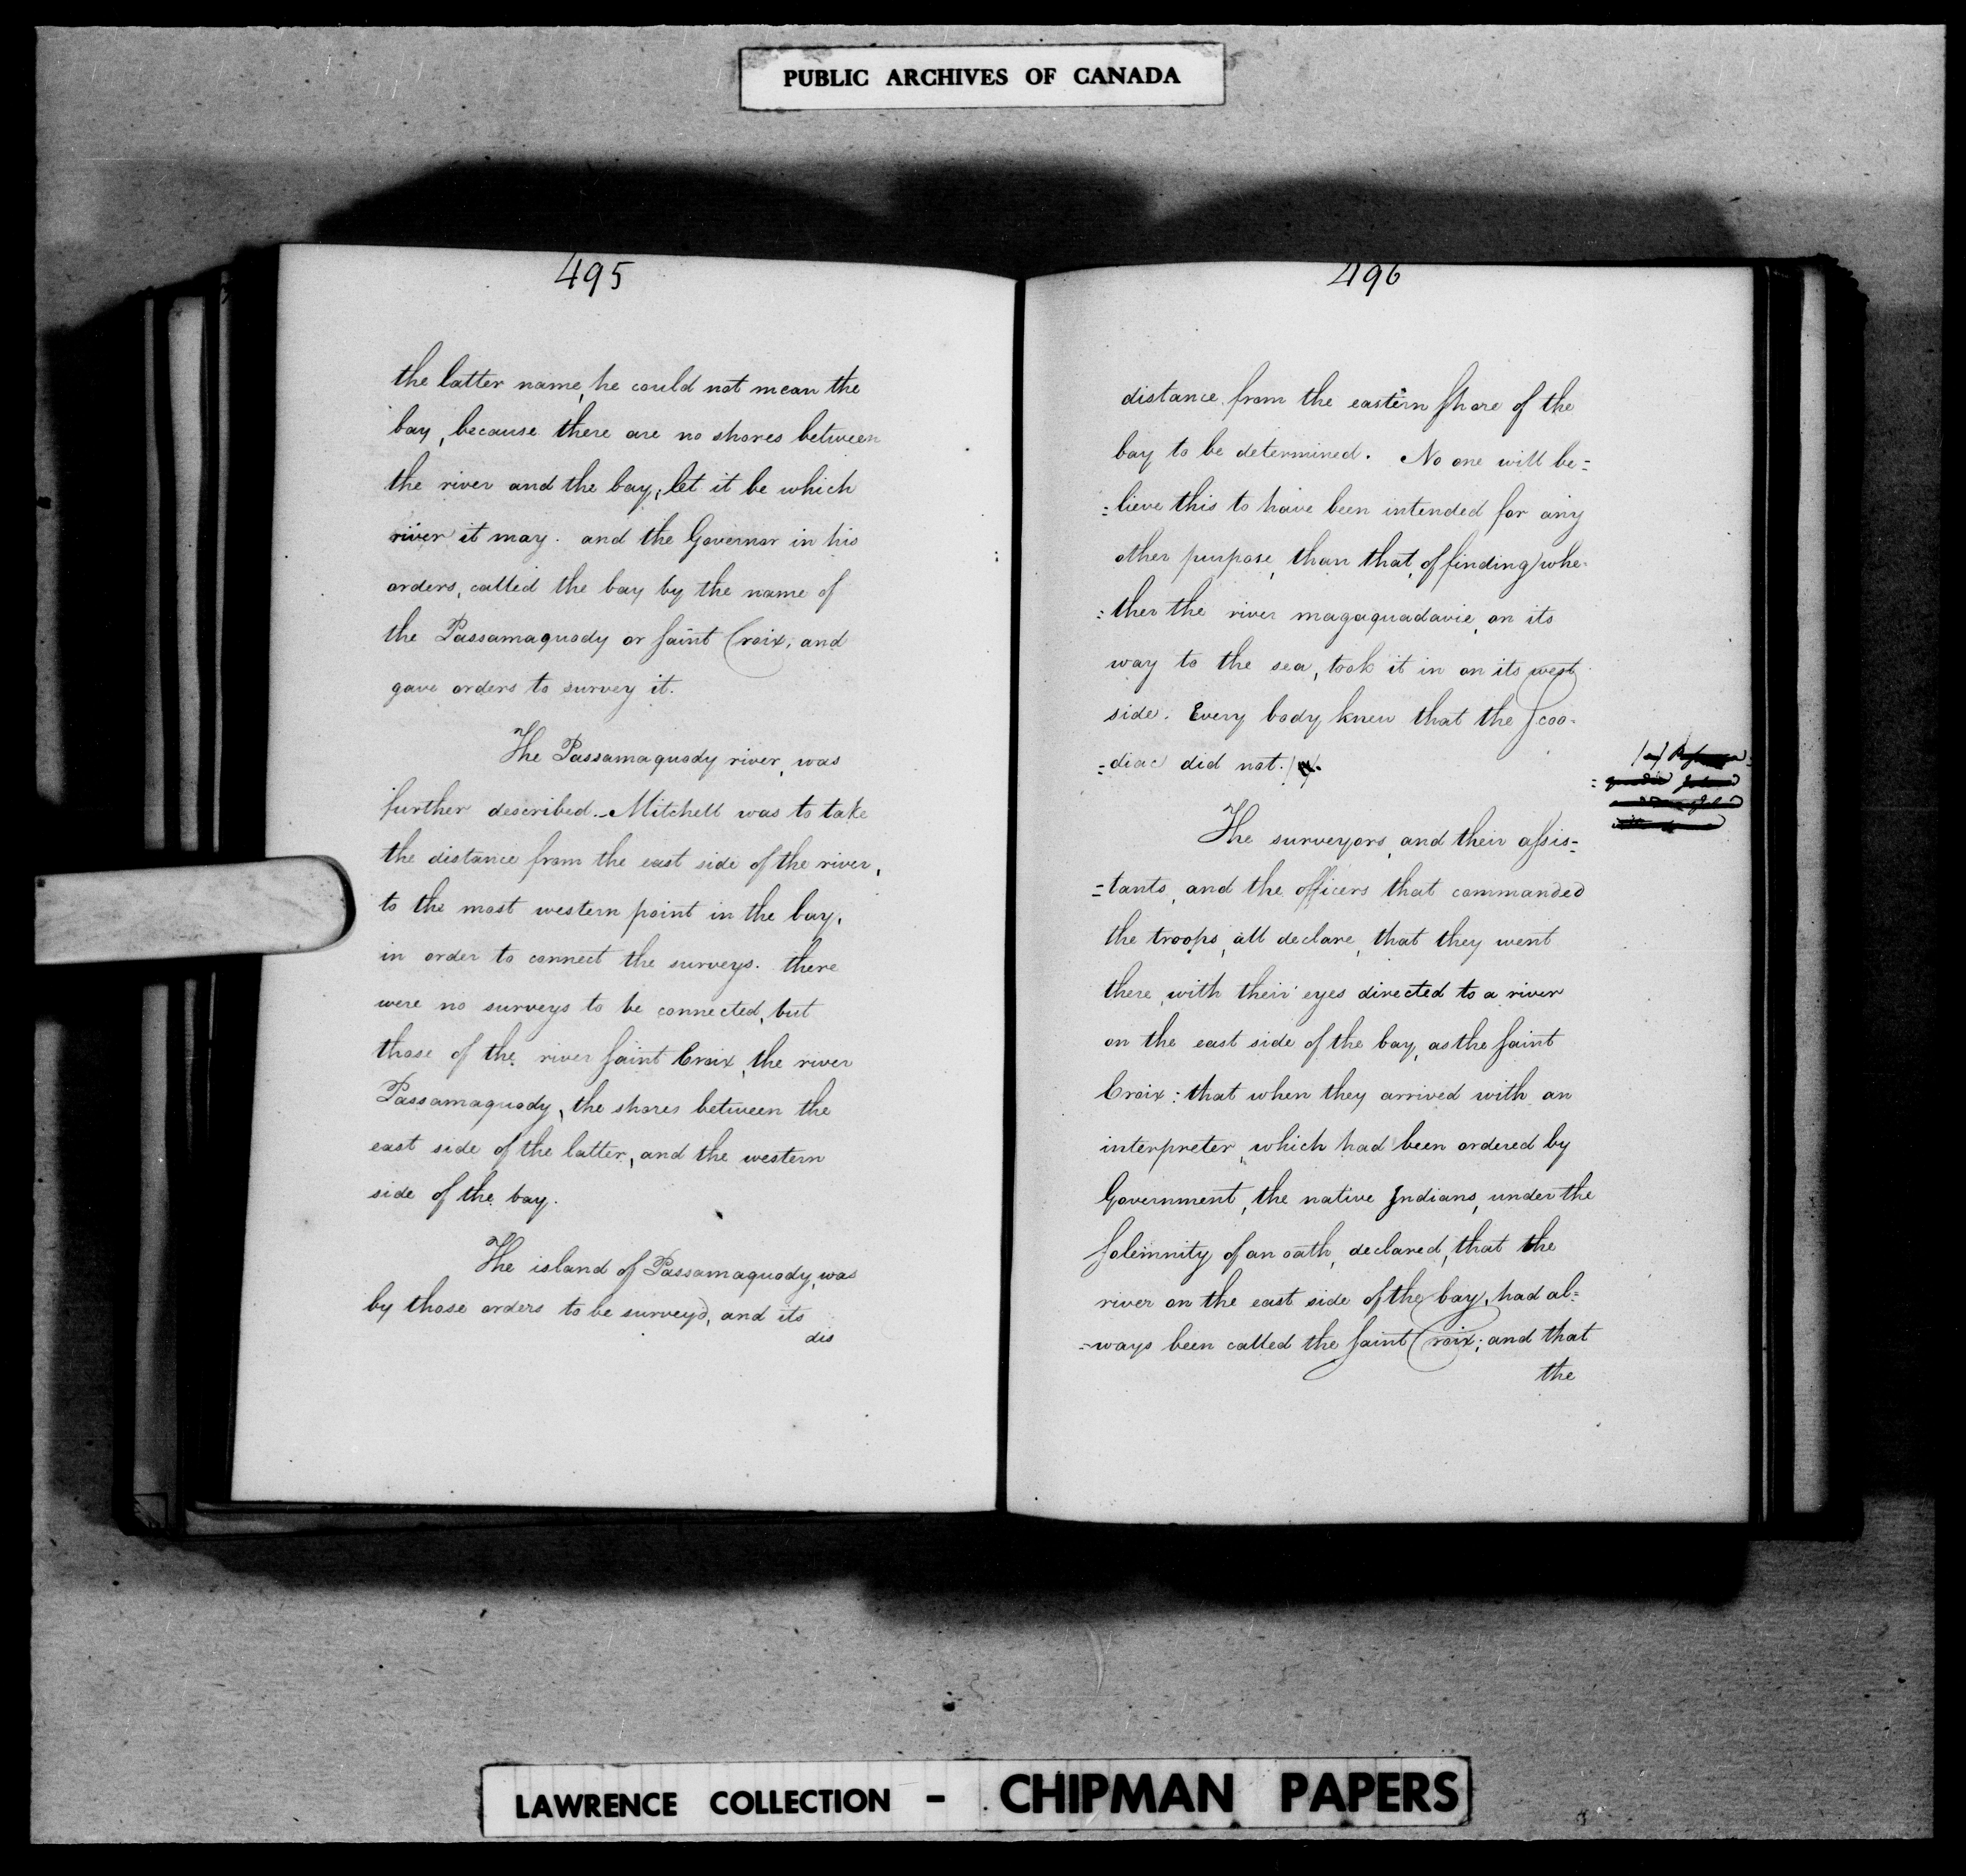 PUBLIC ARCHIVES OF CANADA
495
the latter name, he could not mean the
bay, because there are no shores between
the river and the bay, let it be which
river it may. and the Governor in his
orders, called the bay by the name of
the Passamaquody or saint Croix, and
gave orders to survey it.
The Passamaquody river, was
further described. Mitchell was to take
the distance from the east side of the river,
to the most western point in the bay,
in order to connect the surveys. there
were no surveys to be connected, but
those of the river saint Croix, the river
Passamaquody, the shores between the
east side of the latter, and the western
side of the bay.
The island of Passamaquody, was
by those orders to be surveyd, and its
dis
496
distance from the eastern shore of the
bay to be determined. No one will be=
=lieve this to have been intended for any
other purpose, than that, of finding whe=
=ther the river magaquadavie, on its
way to the sea, took it in on its west
side. Every body knew that the Scoo=
=diac did not.
The surveyors, and their assis=
=tants, and the officers that commanded
the troops, all declare, that they went
there, with their eyes directed to a river
on the east side of the bay, as the saint
Croix: that when they arrived with an
interpreter, which had been ordered by
Government, the native Indians, under the
solemnity of an oath, declared, that the
river on the east side of the bay, had al=
=ways been called the saint Croix; and that
the
LAWRENCE COLLECTION - CHIPMAN PAPERS